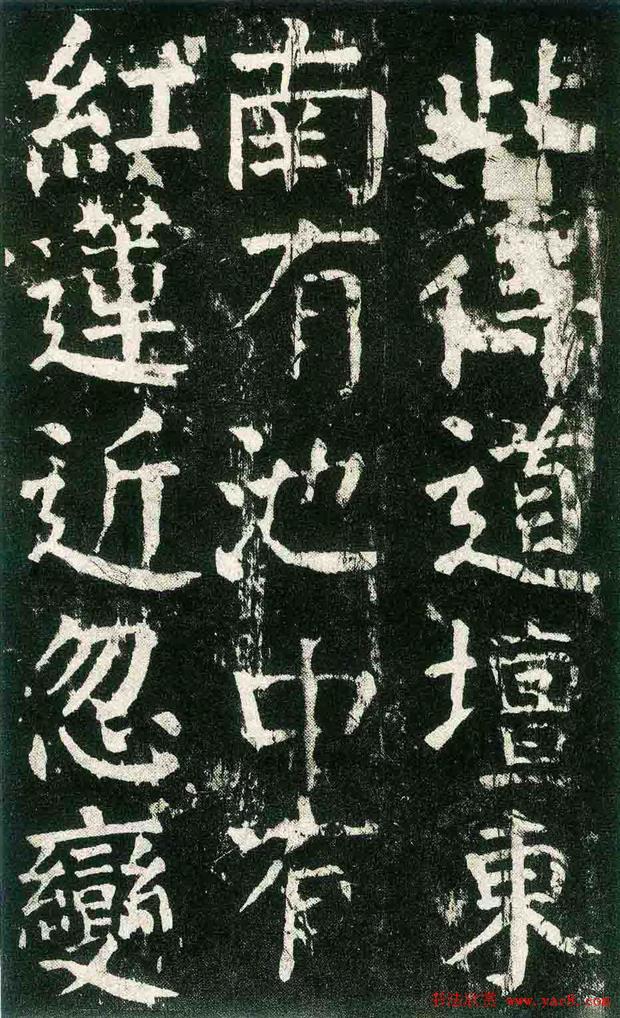 此得道壇東
南有池中有
紅蓮近忽變
书法欣赏 www.yac8.com